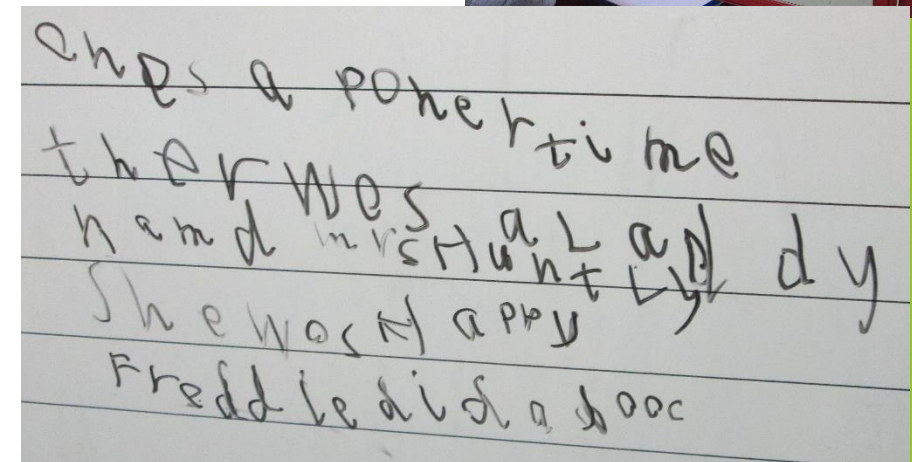 enes a poner time
ther wes a Lad dy
namd mrs Huntly
She wos H appy
Freddie did a booc